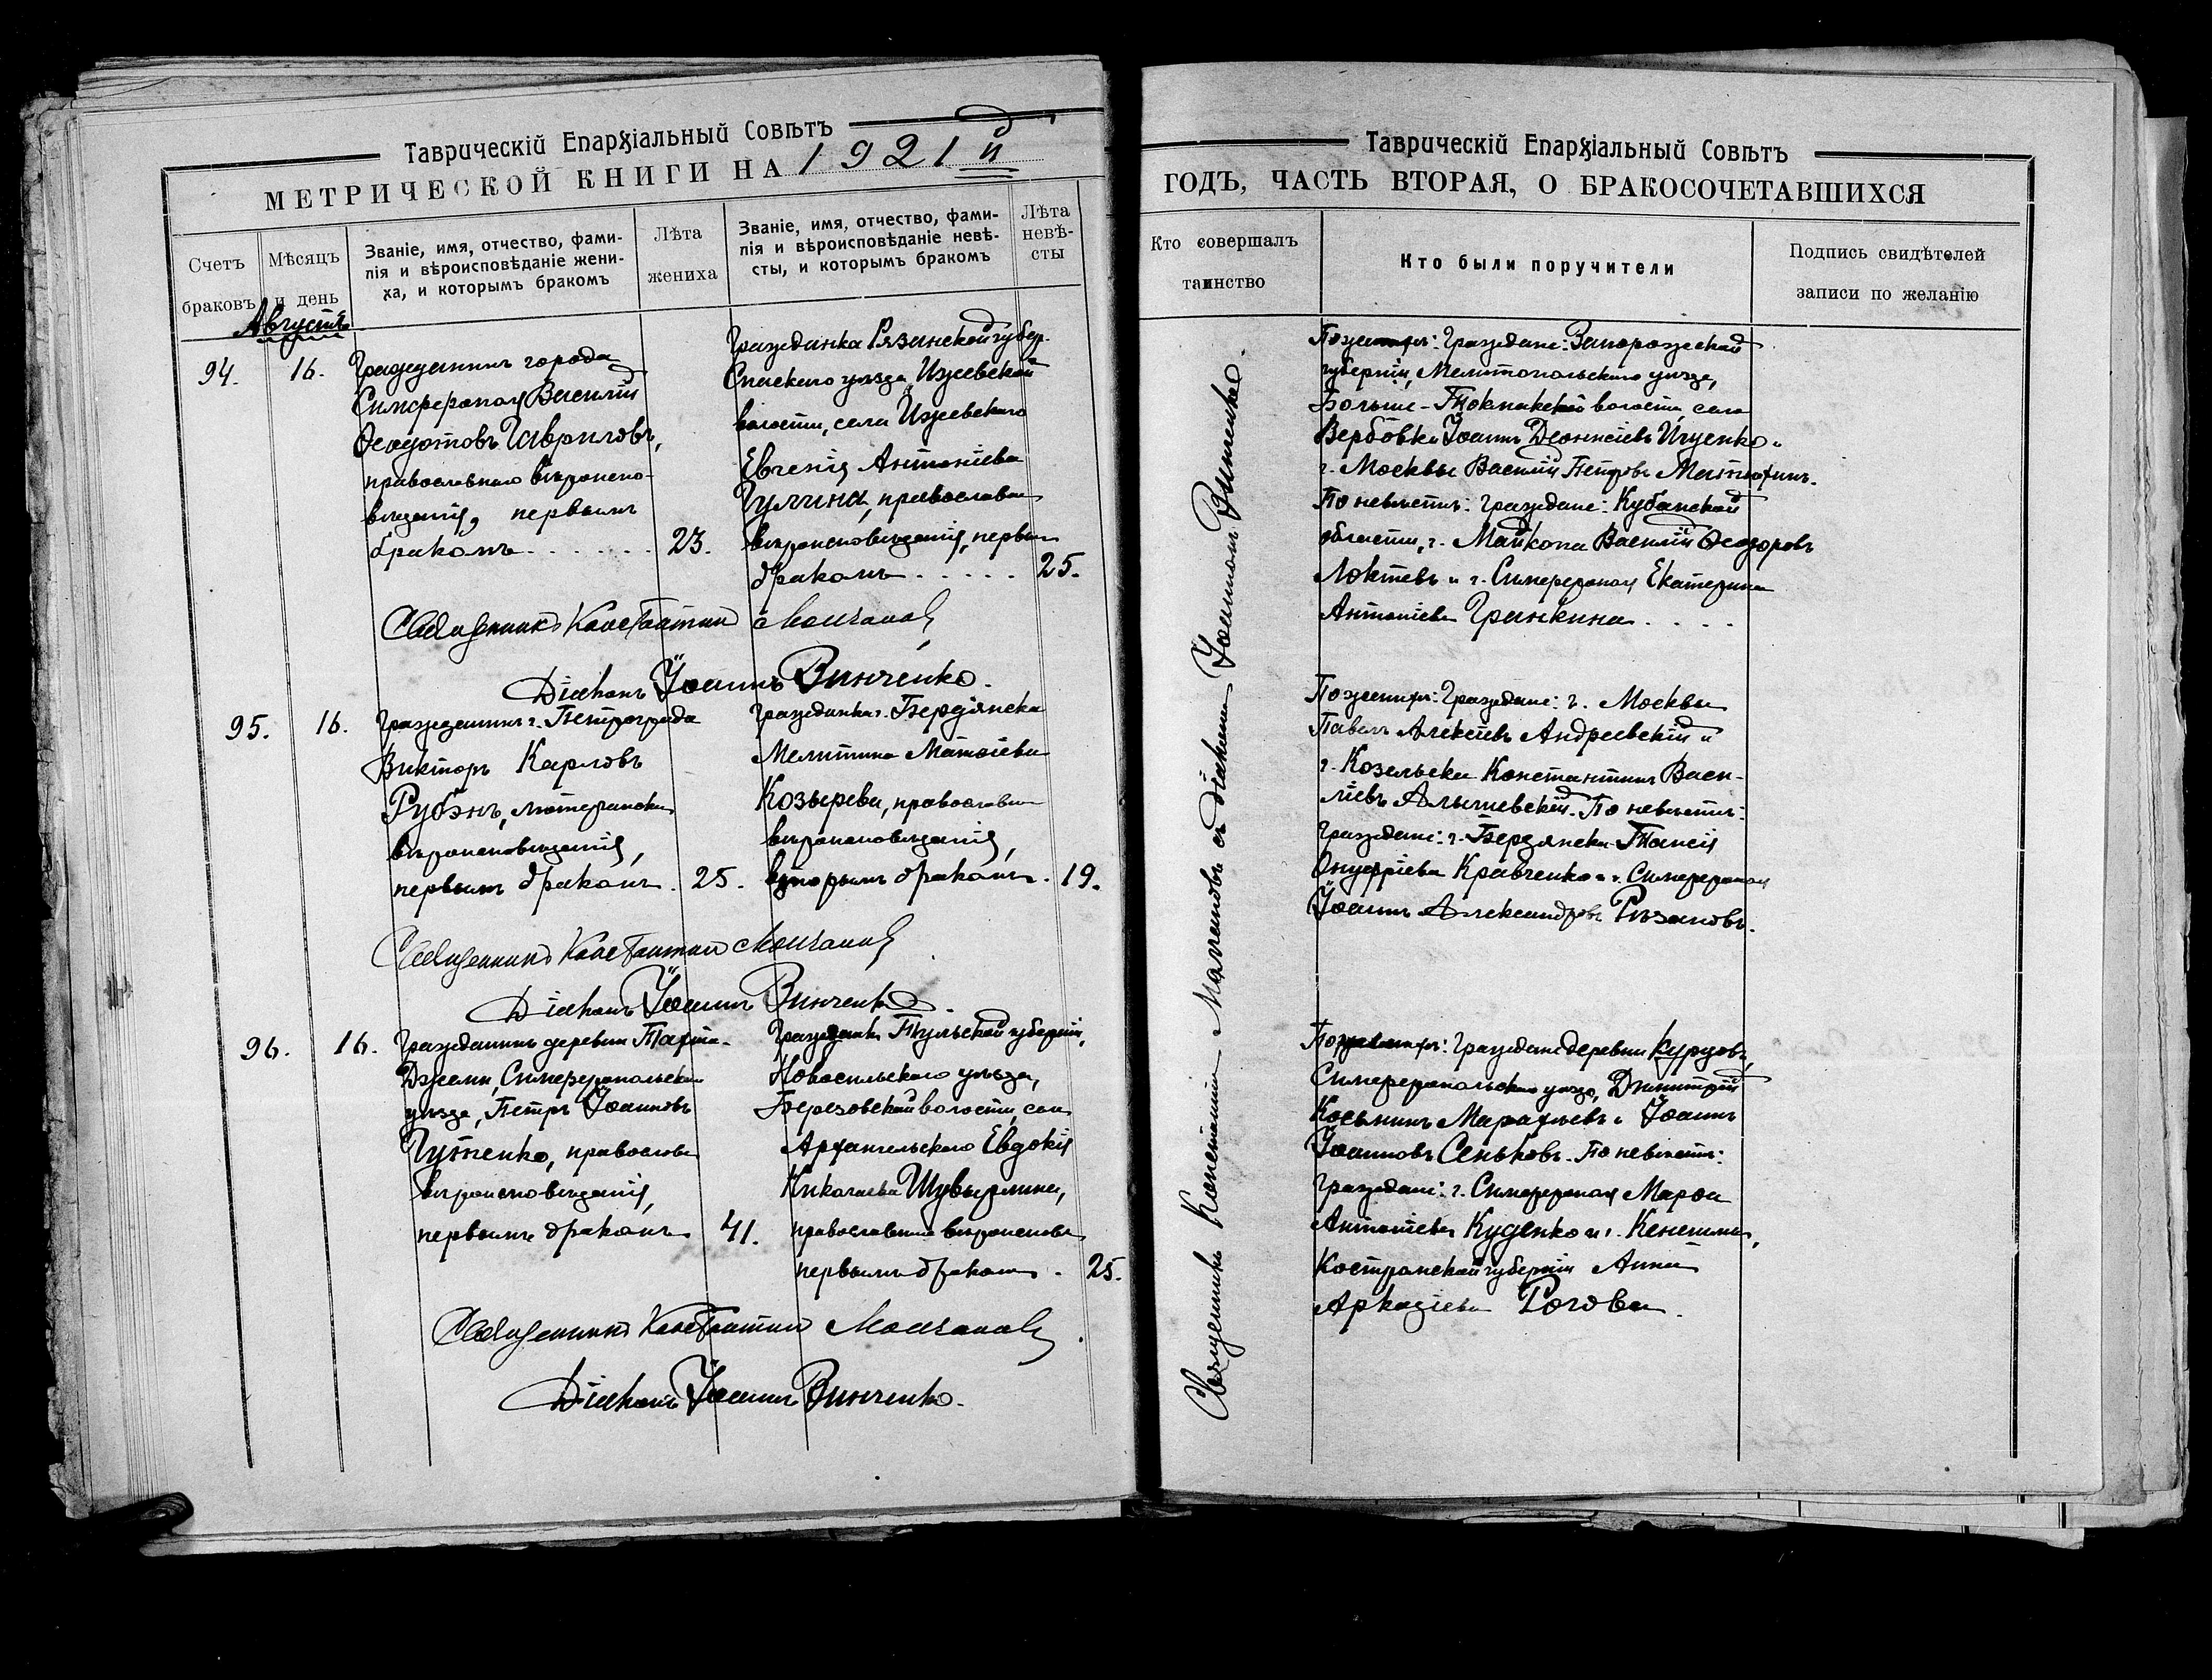 Таврическій Епархіальный Совѣтъ
МЕТРИЧЕСКОЙ КНИГИ НА 1921й
Счетъ браковъ
Мѣсяцъ и день
Званіе, имя, отчество, фами-
лія и вѣроисповѣданіе жени-
ха, и которымъ бракомъ
Лѣта жениха
Званіе, имя, отчество, фами-
лія и вѣроисповѣданіе невѣ-
сты, и которымъ бракомъ
Лѣта
невѣ-
сты
Августъ
94.
16.
Гражданинъ города
Симферополя Василій
Ѳеодотовъ Гавриловъ,
православнаго вѣроиспо-
вѣданія, первымъ
бракомъ . . . . . . 23.
Гражданка Рязанской губер.
Спасскаго уѣзда, Ижевской
волости, села Ижевскаго
Евгенія Антоніева
православн.
вѣроисповѣданія, первым
бракомъ . . . . . 25.
Священникъ Константин Молчановъ
Діаконъ Іоаннъ Винченко.
95.
16.
Гражданинъ г. Петрограда
Викторъ Карловъ
Рубэнъ, лютеранска
вѣроисповѣданія,
первымъ бракомъ. 25.
Гражданка г. Бердянска
Мелитина Матѳіева
Козырева, православн
вѣроисповѣданія,
вторымъ бракомъ. 19.
Священникъ Константин Молчановъ
Діаконъ Іоаннъ Винченко.
96.
16.
Гражданинъ деревни Тахта-
Джами, Симферопольска
уѣзда, Петръ Іоанновъ
православн
вѣроисповѣданія,
первымъ бракомъ 41.
Гражданка Тульской губерніи,
Новосильскаго уѣзда,
Березовской волости, села
Архангельскаго Евдокія
Николаева Шувырлина,
православнаго вѣроисповѣ
первымъ бракомъ . 25.
Священникъ Константин Молчановъ.
Діаконъ Іоаннъ Винченко.
Таврическій Епархіальный Совѣтъ
ГОДЪ, ЧАСТЬ ВТОРАЯ, О БРАКОСОЧЕТАВШИХСЯ
Кто совершалъ
таинство
Кто были поручители
Подпись свидѣтелей
записи по желанію
Священникъ Константинъ Молчановъ съ діакономъ Іоанномъ Винченко.
По женихѣ: Граждане: Запорожской
губерніи, Мелитопольскаго уѣзда,
Больше-Токмакской волости, села
Вербовки Іоаннъ Діонисіевъ Ищенко и
г. Москвы Василій Петровъ Митюхинъ.
По невѣстѣ: граждане: Кубанской
области, г. Майкопа Василій Ѳеодоровъ
Локтевъ и г. Симферополя Екатерина
Антоніева Гринкина . . . .
По женихѣ: Граждане: г. Москвы
Павелъ Алексіевъ Андреевскій и
г. Козельска Константинъ Васи-
ліевъ Алышевскій. По невѣстѣ:
граждане: г. Бердянска Таисія
Онуфріева Кравченко и г. Симферополя
Іоаннъ Александровъ Рѣзановъ.
По женихѣ: Граждане деревни Курцовъ,
Симферопольскаго уѣзда, Димитрій
Косьминъ Марахъевъ и Іоаннъ
Іоанновъ Сеньковъ. По невѣстѣ:
Граждане: г. Симферополя Марѳа
Антоніева Куценко и г. Кинешмы,
Костромской губерніи Анна
Аркадіева Рогова.